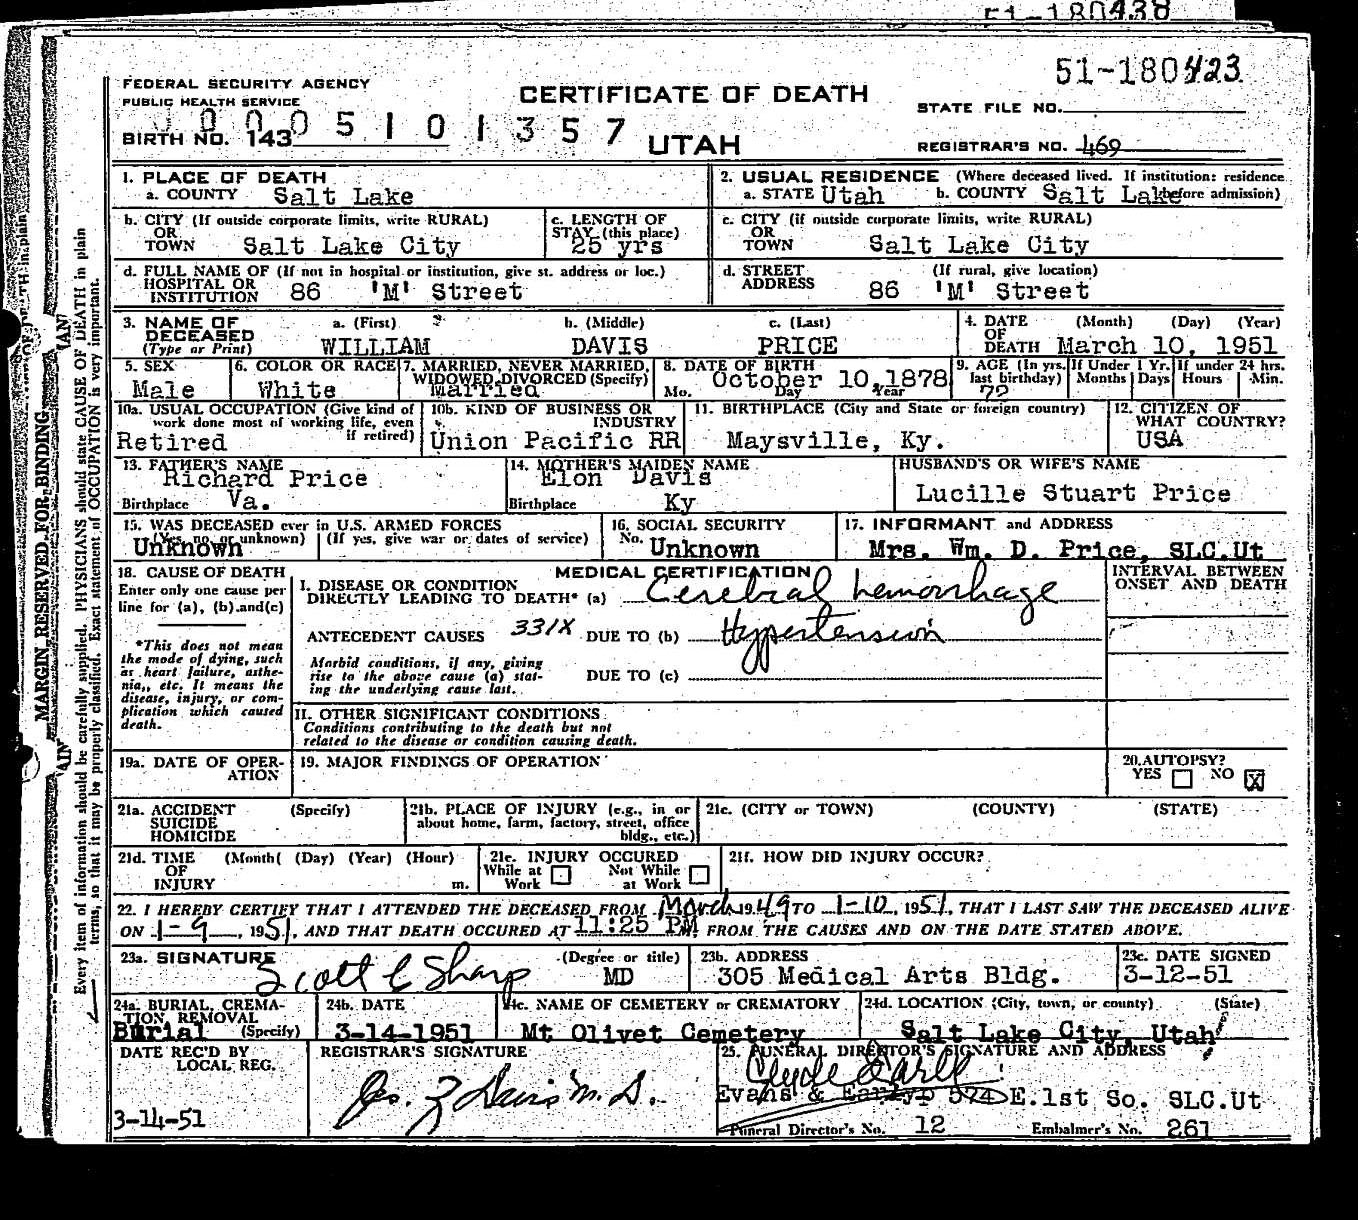 51-180438
51-180423
FEDERAL SECURITY AGENCY
PUBLIC HEALTH SERVICE
CERTIFICATE OF DEATH
STATE FILE NO.
0 0 0 5 1 0 1 3 5 7
BIRTH NO. 143
UTAH
REGISTRAR'S NO. 469
1. PLACE OF DEATH
a. COUNTY Salt Lake
2. USUAL RESIDENCE (Where deceased lived. If institution: residence
a. STATE Utah b. COUNTY Salt Lake before admission)
b. CITY (If outside corporate limits, write RURAL)
OR
TOWN Salt Lake City
c. LENGTH OF
STAY (this place)
25 yrs
c. CITY (if outside corporate limits, write RURAL)
OR
TOWN Salt Lake City
d. FULL NAME OF (If not in hospital or institution, give st. address or loc.)
HOSPITAL OR
INSTITUTION 86 'M' Street
d. STREET (If rural, give location)
ADDRESS 86 'M' Street
3. NAME OF DECEASED (Type or Print)
a. (First) b. (Middle) c. (Last)
WILLIAM DAVIS PRICE
4. DATE OF DEATH (Month) (Day) (Year)
March 10, 1951
5. SEX
Male
6. COLOR OR RACE
White
7. MARRIED, NEVER MARRIED,
WIDOWED, DIVORCED (Specify)
Married
8. DATE OF BIRTH
October 10, 1878
Mo. Day Year
9. AGE (In yrs. last birthday)
72
If Under 1 Yr. Months Days
If under 24 hrs. Hours Min.
10a. USUAL OCCUPATION (Give kind of
work done most of working life, even
if retired)
Retired
10b. KIND OF BUSINESS OR
INDUSTRY
Union Pacific RR
11. BIRTHPLACE (City and State or foreign country)
Maysville, Ky.
12. CITIZEN OF
WHAT COUNTRY?
USA
13. FATHER'S NAME
Richard Price
Birthplace Va.
14. MOTHER'S MAIDEN NAME
Elon Davis
Birthplace Ky
HUSBAND'S OR WIFE'S NAME
Lucille Stuart Price
15. WAS DECEASED ever in U.S. ARMED FORCES
(Yes, no, or unknown) (If yes, give war or dates of service)
Unknown
16. SOCIAL SECURITY
No. Unknown
17. INFORMANT and ADDRESS
Mrs. Wm. D. Price, SLC.Ut
18. CAUSE OF DEATH
Enter only one cause per
line for (a), (b).and(c)
*This does not mean
the mode of dying, such
as heart failure, asthe-
nia,, etc. It means the
disease, injury, or com-
plication which caused
death.
MEDICAL CERTIFICATION
I. DISEASE OR CONDITION
DIRECTLY LEADING TO DEATH* (a) Cerebral hemorrhage
ANTECEDENT CAUSES 331X DUE TO (b) Hypertension
Morbid conditions, if any, giving
rise to the above cause (a) stat-
ing the underlying cause last.
DUE TO (c)
INTERVAL BETWEEN
ONSET AND DEATH
II. OTHER SIGNIFICANT CONDITIONS
Conditions contributing to the death but not
related to the disease or condition causing death.
19a. DATE OF OPER-
ATION
19. MAJOR FINDINGS OF OPERATION
20. AUTOPSY?
YES NO X
21a. ACCIDENT (Specify)
SUICIDE
HOMICIDE
21b. PLACE OF INJURY (e.g., in or
about home, farm, factory, street, office
bldg., etc.)
21c. (CITY or TOWN) (COUNTY) (STATE)
21d. TIME (Month( (Day) (Year) (Hour)
OF
INJURY m.
21e. INJURY OCCURED
While at Work Not While at Work
21f. HOW DID INJURY OCCUR?
22. I HEREBY CERTIFY THAT I ATTENDED THE DECEASED FROM March 1949 TO 1-10, 1951, THAT I LAST SAW THE DECEASED ALIVE
ON 1-9, 1951, AND THAT DEATH OCCURED AT 11:25 PM FROM THE CAUSES AND ON THE DATE STATED ABOVE.
23a. SIGNATURE (Degree or title)
Scott C Sharp MD
23b. ADDRESS
305 Medical Arts Bldg.
23c. DATE SIGNED
3-12-51
24a. BURIAL, CREMA-
TION, REMOVAL
Burial (Specify)
24b. DATE
3-14-1951
24c. NAME OF CEMETERY OR CREMATORY
Mt Olivet Cemetery
24d. LOCATION (City, town, or county) (State)
Salt Lake City, Utah
DATE REC'D BY
LOCAL REG.
3-14-51
REGISTRAR'S SIGNATURE
25. FUNERAL DIRECTOR'S SIGNATURE AND ADDRESS
Evans & Early, 574 E.1st So. SLC.Ut
Funeral Director's No. 12 Embalmer's No. 261
MARGIN RESERVED FOR BINDING
Every item of information should be carefully supplied. PHYSICIANS should state CAUSE OF DEATH in plain
terms, so that it may be properly classified. Exact statement of OCCUPATION is very important.